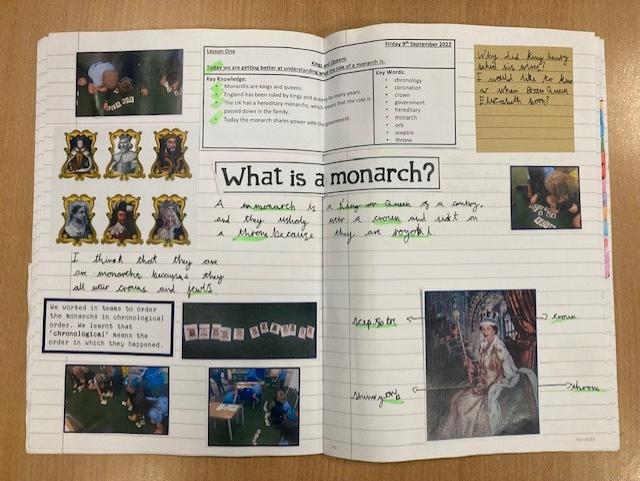 Lesson One
Friday 9th September 2022
Kings and Queens
Today we are getting better at understanding what the role of a monarch is.
Key Knowledge:
Monarchs are kings and queens.
England has been ruled by kings and queens for many years.
The UK has a hereditary monarchy, which means that the role is
passed down in the family.
Today the monarch shares power with the government.
Key Words:
chronology
coronation
crown
government
hereditary
monarch
orb
sceptre
throne
Why did king henry
I would like to
when Queen
Elizabeth born?
What is a monarch?
A monarch is a King or Queen of a
and they wear a crown and on
a throne because they are
I think that they are
an monarchs they
all crowns and
We worked in teams to order
the monarchs in chronological
order. We learnt that
'chronological' means the
order in which they happened.
crown
orb
throne